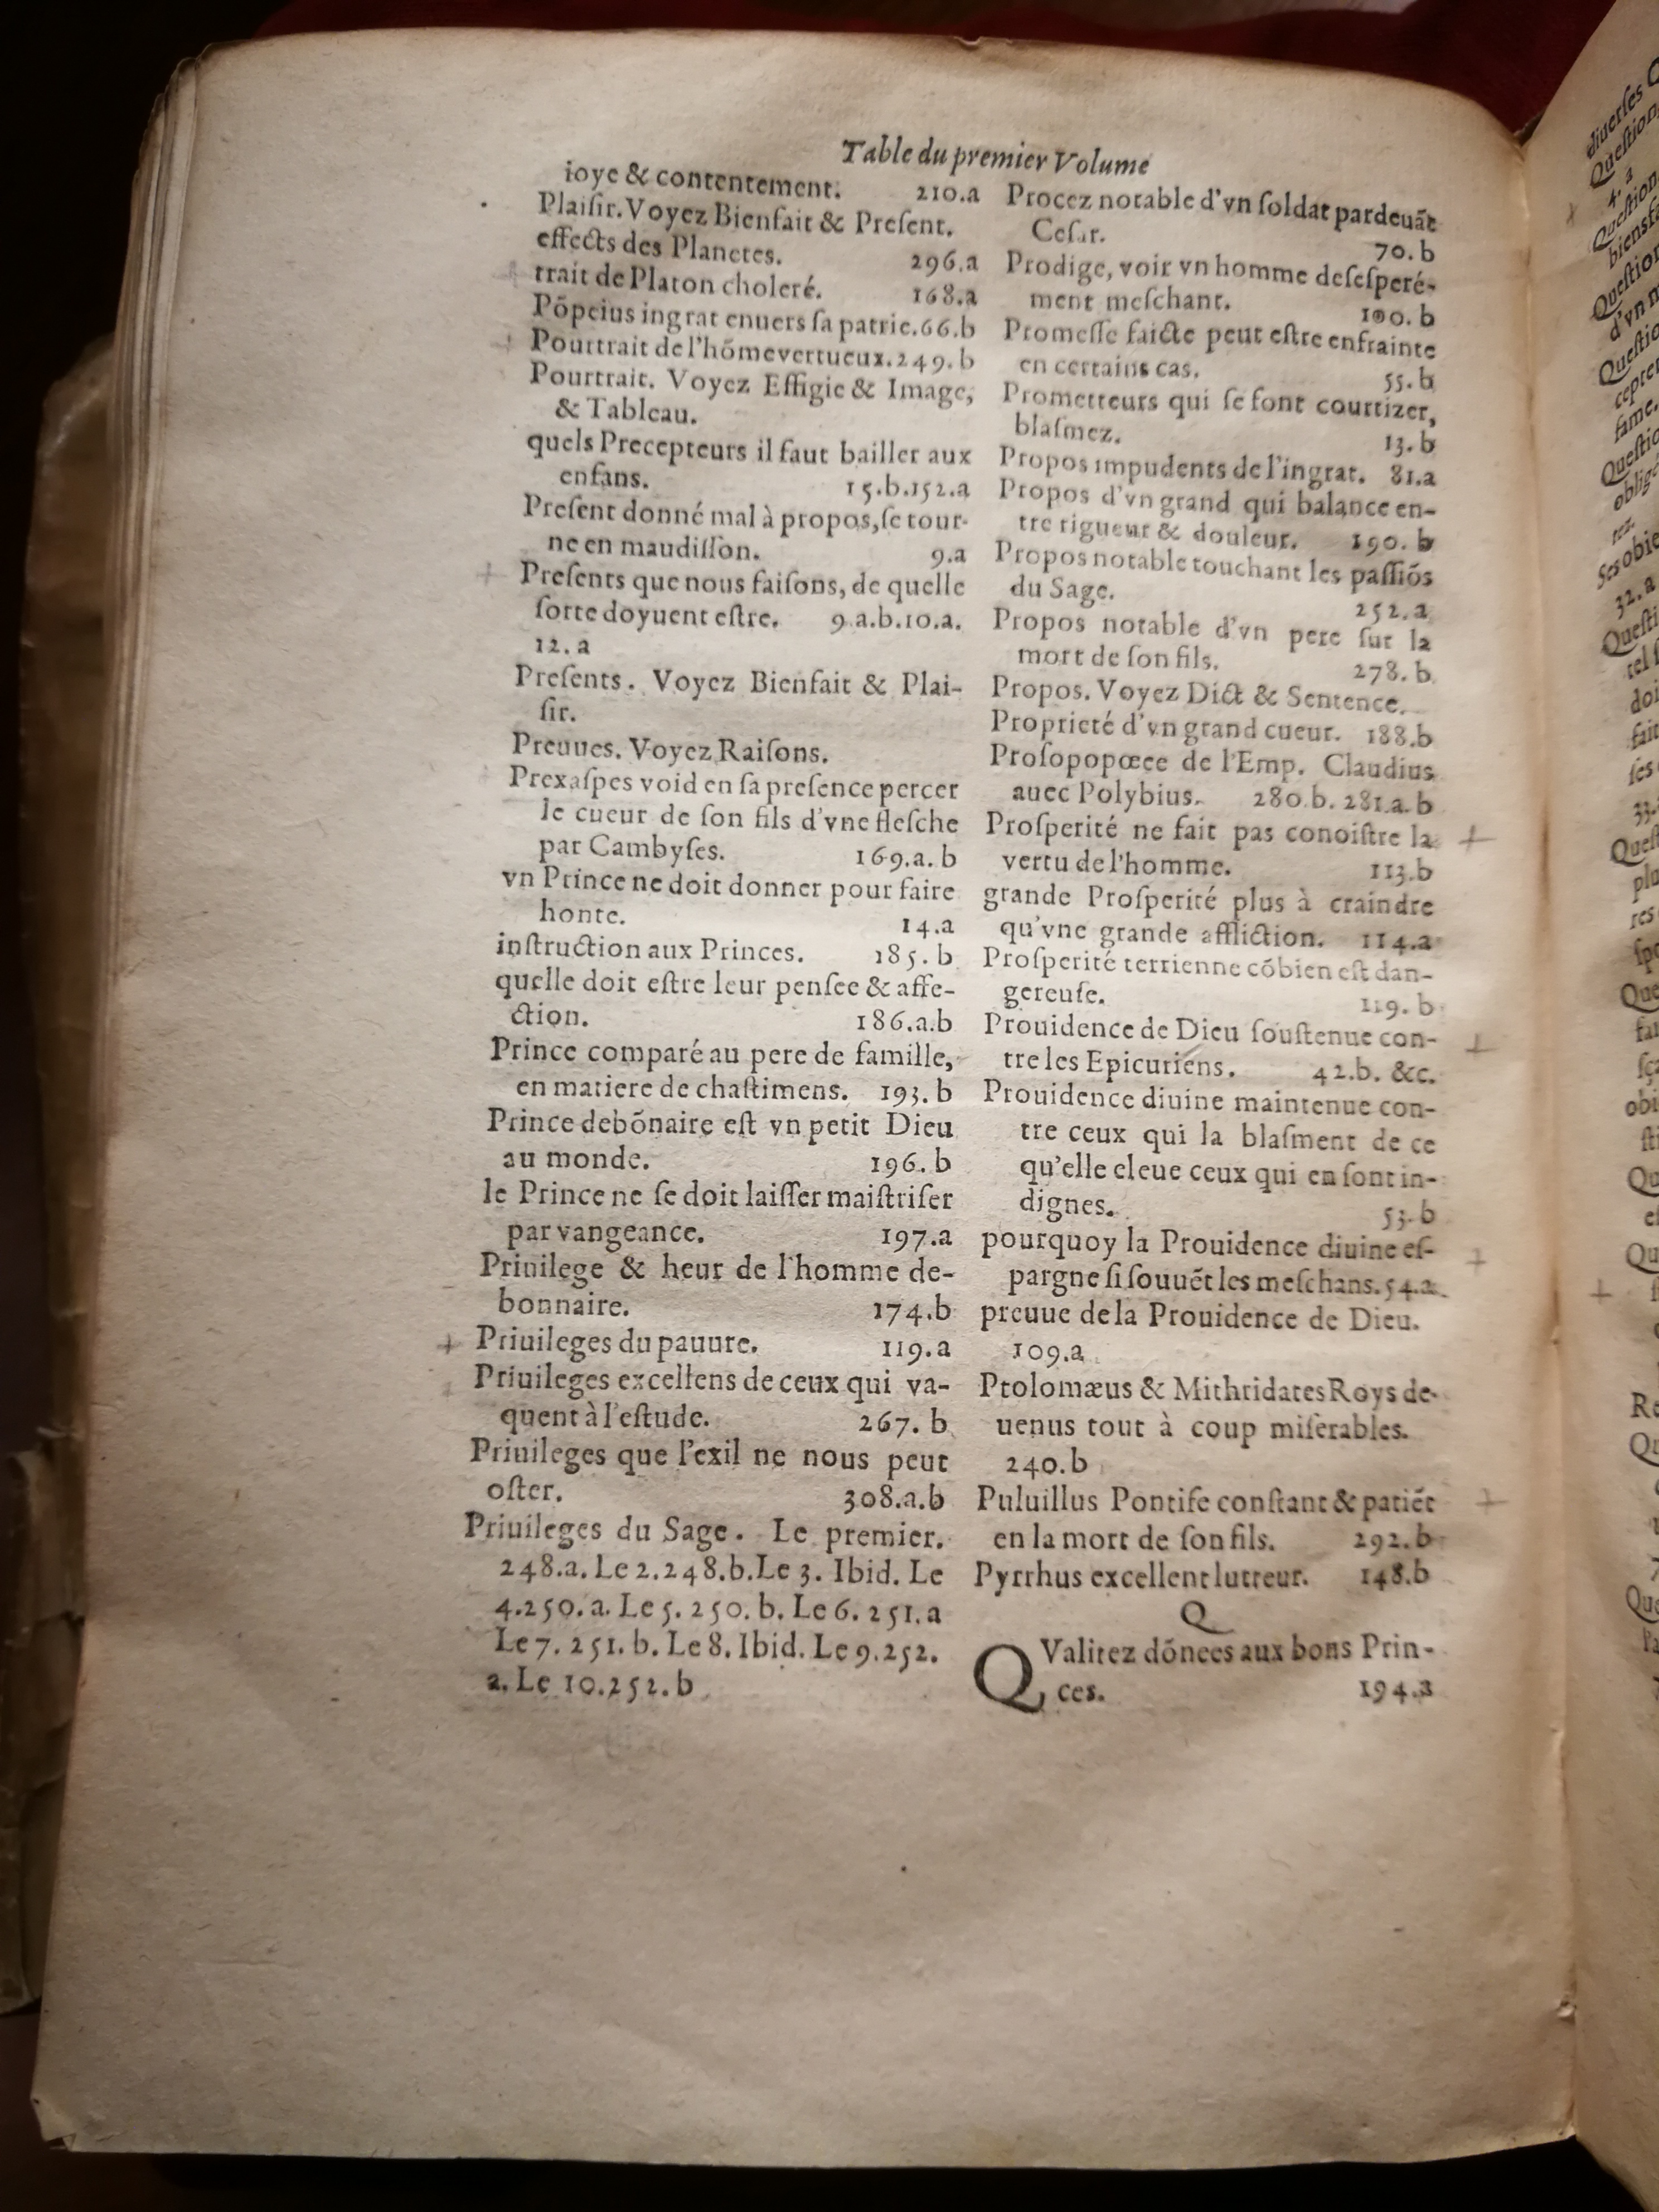 Table du premier Volume
ioye & contentement. 210.a
Plaiſir. Voyez Bienfait & Preſent.
effects des Planetes. 296.a
trait de Platon choleré. 168.a
Põpeius ingrat enuers ſa patrie. 66.b
Pourtrait de l'hõme vertueux. 249.b
Pourtrait. Voyez Effigie & Image,
& Tableau.
quels Precepteurs il faut bailler aux
enfans. 15.b.152.a
Preſent donné mal à propos, ſe tour-
ne en maudiſſon. 9.a
Preſents que nous faiſons, de quelle
ſorte doyuent eſtre. 9.a.b.10.a.
12.a
Preſents. Voyez Bienfait & Plai-
ſir.
Preuues. Voyez Raiſons.
Prexaſpes void en ſa preſence percer
le cueur de ſon fils d'vne fleſche
par Cambyſes. 169.a.b
vn Prince ne doit donner pour faire
honte. 14.a
inſtruction aux Princes. 185.b
quelle doit eſtre leur penſee & affe-
ction. 186.a.b
Prince comparé au pere de famille,
en matiere de chaſtimens. 193.b
Prince debõnaire eſt vn petit Dieu
au monde. 196.b
le Prince ne ſe doit laiſſer maiſtriſer
par vangeance. 197.a
Priuilege & heur de l'homme de-
bonnaire. 174.b
+ Priuileges du pauure. 119.a
Priuileges excellens de ceux qui va-
quent à l'eſtude. 267.b
Priuileges que l'exil ne nous peut
oſter. 308.a.b
Priuileges du Sage. Le premier.
248.a. Le 2.248.b. Le 3. Ibid. Le
4.250.a. Le 5.250.b. Le 6.251.a
Le 7.251.b. Le 8. Ibid. Le 9.252.
a. Le 10.252.b
Procez notable d'vn ſoldat pardeuãt
Ceſar. 70.b
Prodige, voir vn homme deſeſperé-
ment meſchant. 100.b
Promeſſe faicte peut eſtre enfrainte
en certains cas. 55.b
Prometteurs qui ſe font courtizer,
blaſmez. 13.b
Propos impudents de l'ingrat. 81.a
Propos d'vn grand qui balance en-
tre rigueur & douleur. 190.b
Propos notable touchant les paſſiõs
du Sage. 252.a
Propos notable d'vn pere ſur la
mort de ſon fils. 278.b
Propos. Voyez Dict & Sentence.
Proprieté d'vn grand cueur. 188.b
Proſopopœce de l'Emp. Claudius
auec Polybius. 280.b. 281.a.b
Proſperité ne fait pas conoiſtre la +
vertu de l'homme. 113.b
grande Proſperité plus à craindre
qu'vne grande affliction. 114.a
Proſperité terrienne cõbien eſt dan-
gereuſe. 119.b
Prouidence de Dieu ſouſtenue con- +
tre les Epicuriens. 42.b. &c.
Prouidence diuine maintenue con-
tre ceux qui la blaſment de ce
qu'elle eleue ceux qui en ſont in-
dignes. 53.b
pourquoy la Prouidence diuine eſ- +
pargne ſi ſouuẽt les meſchans. 54.a
preuue de la Prouidence de Dieu.
109.a
Ptolomæus & Mithridates Roys de-
uenus tout à coup miſerables.
240.b
Puluillus Pontife conſtant & patiẽt +
en la mort de ſon fils. 292.b
Pyrrhus excellent lutteur. 148.b
Q
QValitez dõnees aux bons Prin-
ces. 194.a